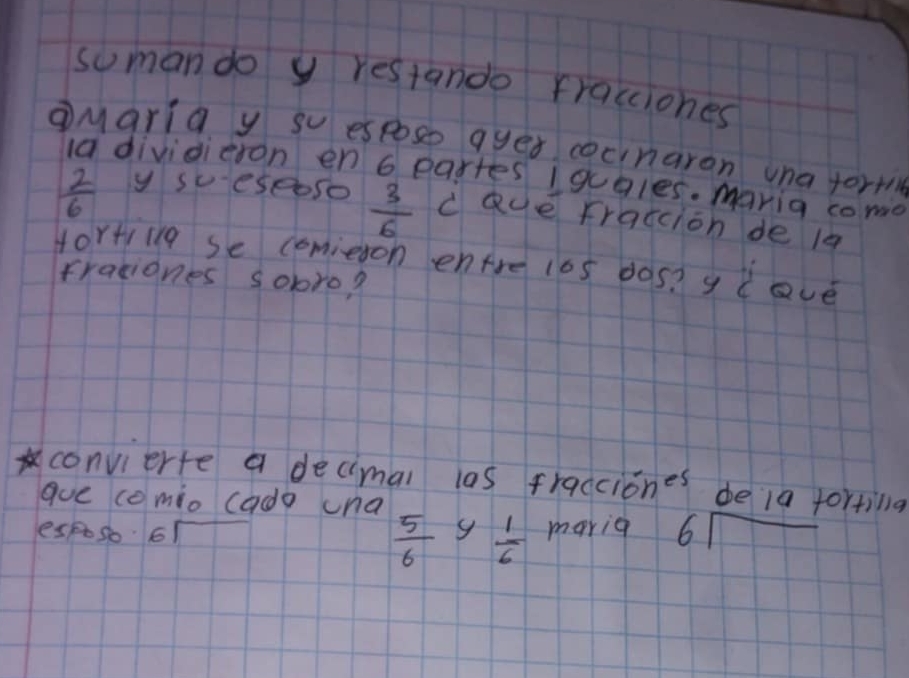 sumando y restando fracciones
@ Maria y su esposo ayer cocinaron una tortilla
la dividieron en 6 partes iguales. Maria comio
2/6 y su esposo 3/6 ¿ Qué fracción de la
tortilla se comieron entre los dos? y ¿ Qué
fraciones sobro?
*convierte a decimal las fracciónes de la tortilla
que comio cada una
esposo. 6 5/6 y 1/6 maria 6